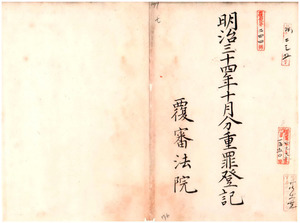 明治三十四年十月分重罪登記
覆審法院